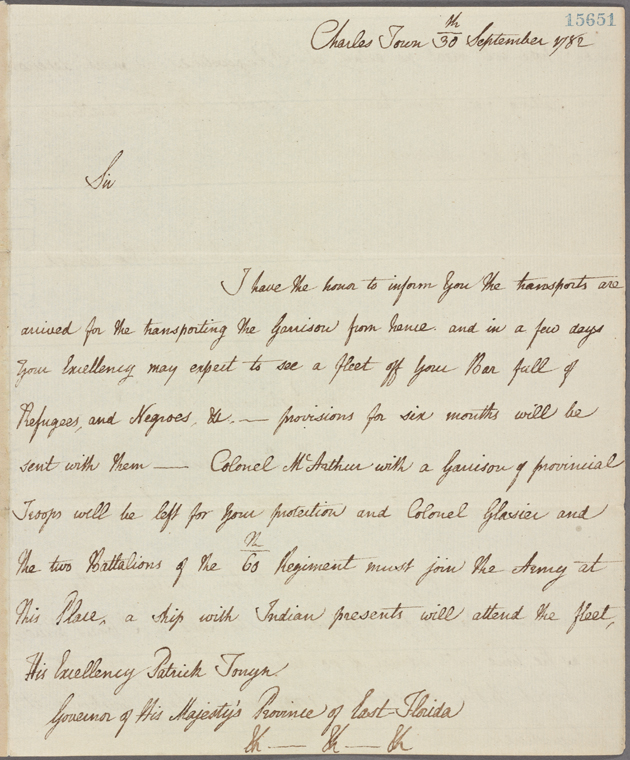 15651
Charles Town 30th September 1782
Sir
I have the honor to inform You the transports are
arrived for the transporting the Garrison from hence. and in a few days
Your Excellency may expect to see a fleet off Your Bar full of
Refugees, and Negroes, &c. — provisions for six months will be
sent with them — Colonel McArthur with a Garrison of provincial
Troops will be left for Your protection and Colonel Glasier and
the two Battalions of the 60th Regiment must join the Army at
this Place, a ship with Indian presents will attend the fleet,
His Excellency Patrick Tonyn.
Governor of His Majesty's Province of East Florida
&c — &c — &c